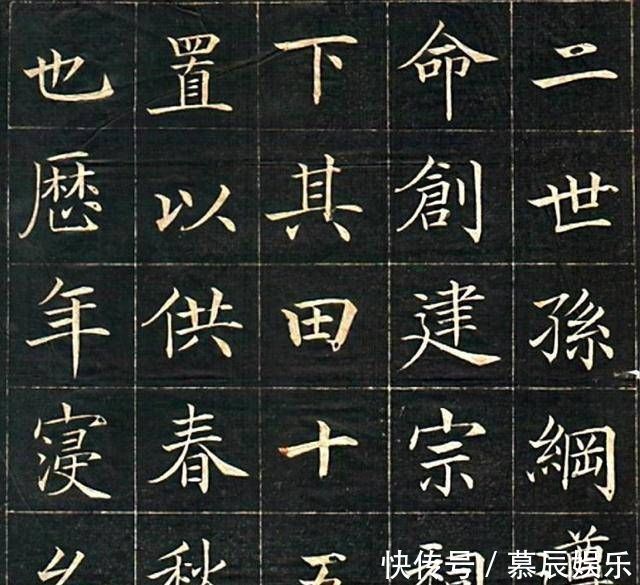 二世孫綱
命創建宗
下其田十五
置以供春秋
也歷年寖
快传号/慕辰娱乐